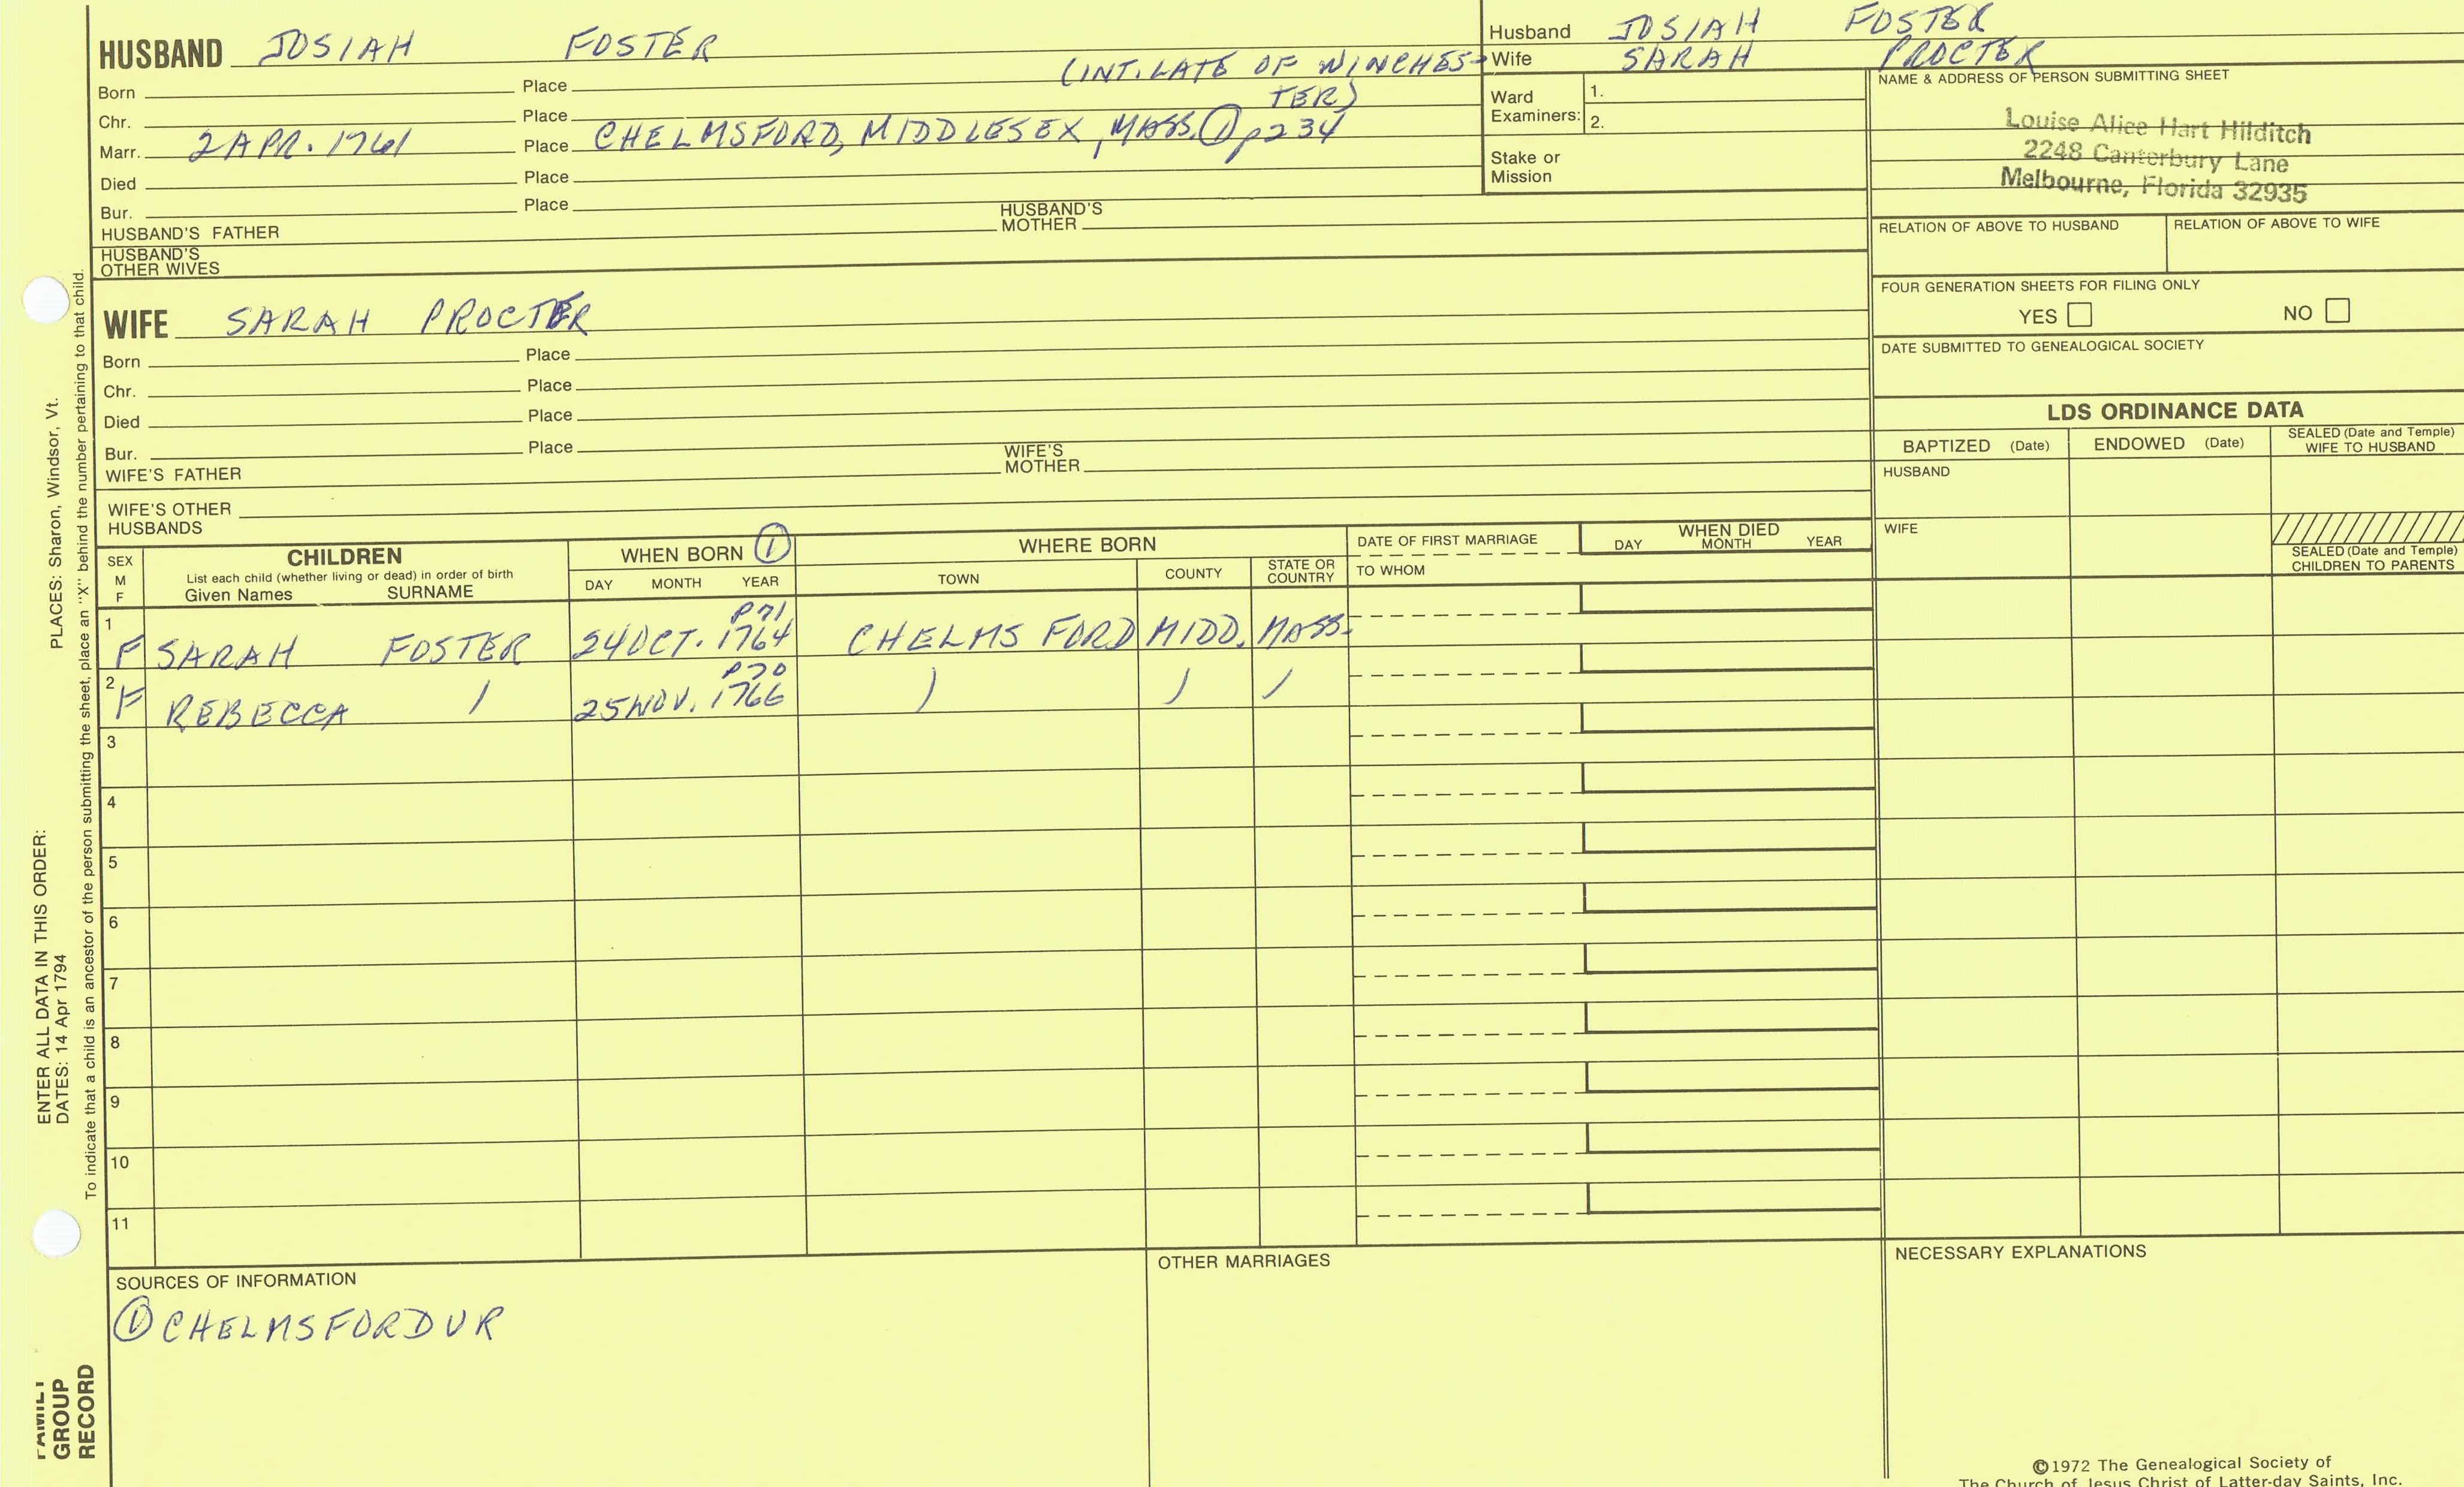 HUSBAND JOSIAH FOSTER
(INT. LATE OF WINCHES-
TER)
Born Place
Chr. Place
Marr. 2 APR. 1761 Place CHELMSFORD, MIDDLESEX, MASS. ① p234
Died Place
Bur. Place
HUSBAND'S FATHER HUSBAND'S MOTHER
HUSBAND'S
OTHER WIVES
Husband JOSIAH FOSTER
Wife SARAH PROCTER
Ward
Examiners: 1.
2.
Stake or
Mission
NAME & ADDRESS OF PERSON SUBMITTING SHEET
Louise Alice Hart Hilditch
2248 Canterbury Lane
Melbourne, Florida 32935
RELATION OF ABOVE TO HUSBAND RELATION OF ABOVE TO WIFE
FOUR GENERATION SHEETS FOR FILING ONLY
YES NO
DATE SUBMITTED TO GENEALOGICAL SOCIETY
WIFE SARAH PROCTER
Born Place
Chr. Place
Died Place
Bur. Place
WIFE'S FATHER WIFE'S MOTHER
WIFE'S OTHER
HUSBANDS
LDS ORDINANCE DATA
BAPTIZED (Date) ENDOWED (Date) SEALED (Date and Temple)
WIFE TO HUSBAND
HUSBAND
WIFE
SEALED (Date and Temple)
CHILDREN TO PARENTS
SEX
M
F
CHILDREN
List each child (whether living or dead) in order of birth
Given Names SURNAME
WHEN BORN ①
DAY MONTH YEAR
WHERE BORN
TOWN COUNTY STATE OR
COUNTRY
DATE OF FIRST MARRIAGE
TO WHOM
WHEN DIED
DAY MONTH YEAR
P71
1 F SARAH FOSTER 24 OCT. 1764 CHELMSFORD MIDD. MASS.
P70
2 F REBECCA / 25 NOV. 1766 ) ) /
3
4
5
6
7
8
9
10
11
SOURCES OF INFORMATION
① CHELMSFORD VR
OTHER MARRIAGES
NECESSARY EXPLANATIONS
©1972 The Genealogical Society of
The Church of Jesus Christ of Latter-day Saints, Inc.
ENTER ALL DATA IN THIS ORDER:
DATES: 14 Apr 1794 PLACES: Sharon, Windsor, Vt.
To indicate that a child is an ancestor of the person submitting the sheet, place an "X" behind the number pertaining to that child.
FAMILY
GROUP
RECORD